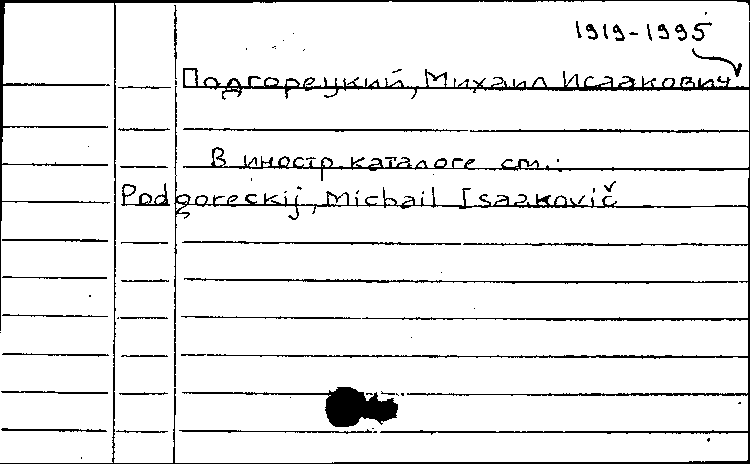 1919-1995
Подгорецкий, Михаил Исаакович
В иностр. каталоге см.:
Podgoreckij, Michail Isaakovič